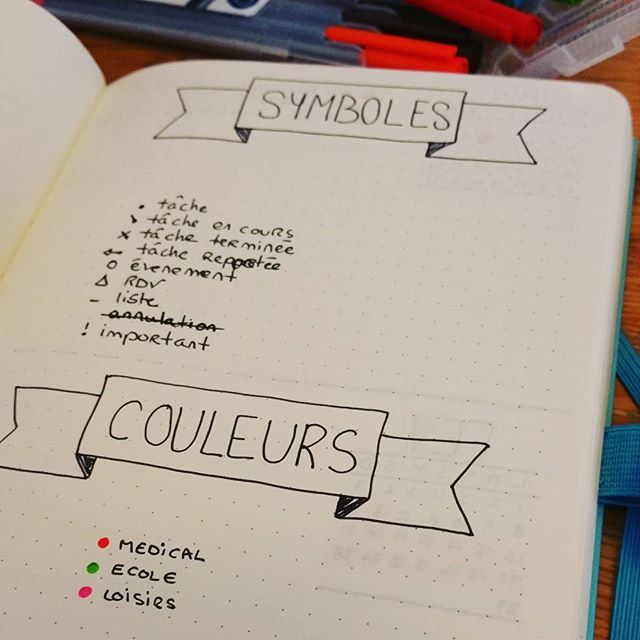 SYMBOLES
• tâche
↘ tâche en cours
x tâche terminée
← tâche reportée
o évenement
Δ RDV
- liste
annulation
! important
COULEURS
• MEDICAL
• ECOLE
• LOISIRS